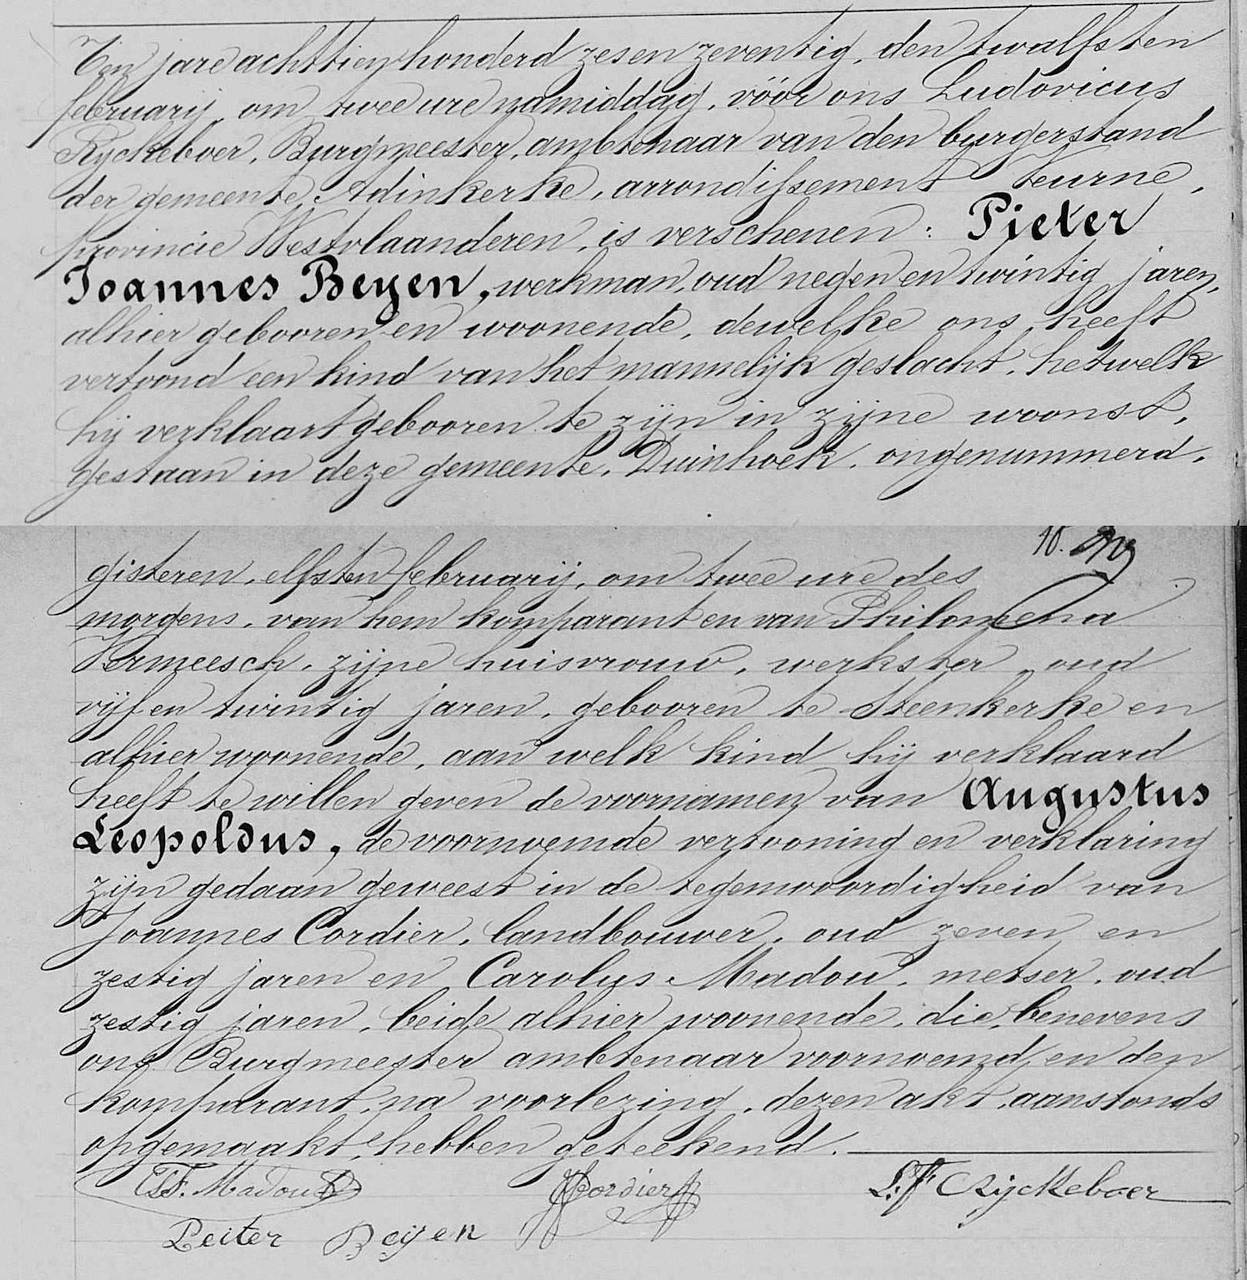 Ten jare achttien honderd zes en zeventig, den twalfsten
februarij, om twee ure namiddag, vóór ons Ludovicus
Ryckeboer, Burgmeester, ambtenaar van den burgerstand
der gemeente, Adinkerke, arrondissement Veurne,
provincie Westvlaanderen, is verschenen: Pieter
Joannes Beyen, werkman, oud negen en twintig jaren,
alhier gebooren en woonende, dewelke ons heeft
vertoond een kind van het mannelijk geslacht, hetwelk
hij verklaart gebooren te zijn in zijne woonst,
gestaan in deze gemeente, Duinhoek, ongenummerd,
10.
gisteren, elfsten februarij, om twee ure des
morgens, van hem komparant en van Philomena
Vermeesch, zijne huisvrouw, werkster, oud
vijf en twintig jaren, gebooren te Steenkerke en
alhier woonende, aan welk kind hij verklaard
heeft te willen geven de voornamen van Augustus
Leopoldus, de voornoemde vertooning en verklaring
zijn gedaan geweest in de tegenwoordigheid van
Joannes Cordier, landbouwer, oud zeven en
zestig jaren en Carolus Madou, metser, oud
zestig jaren, beide alhier woonende, die, benevens
ons Burgmeester ambtenaar voornoemd, en den
komparant, na voorlezing, dezen akt, aanstonds
opgemaakt, hebben geteekend.
Madou Cordier L. F. Ryckeboer
Peiter Beijen